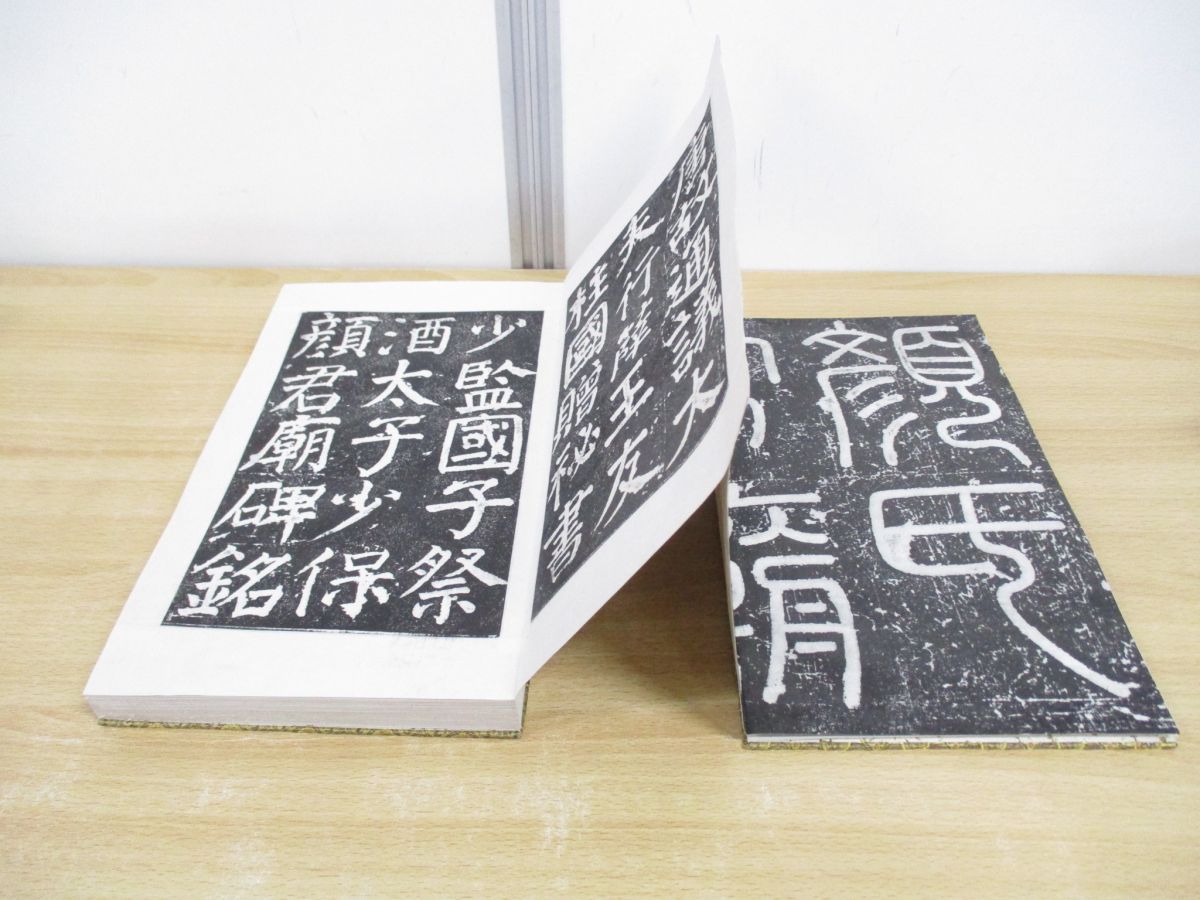 顏氏
唐故通議大
夫行薛王友
柱國贈祕書
少監國子祭
酒太子少保
顏君廟碑銘